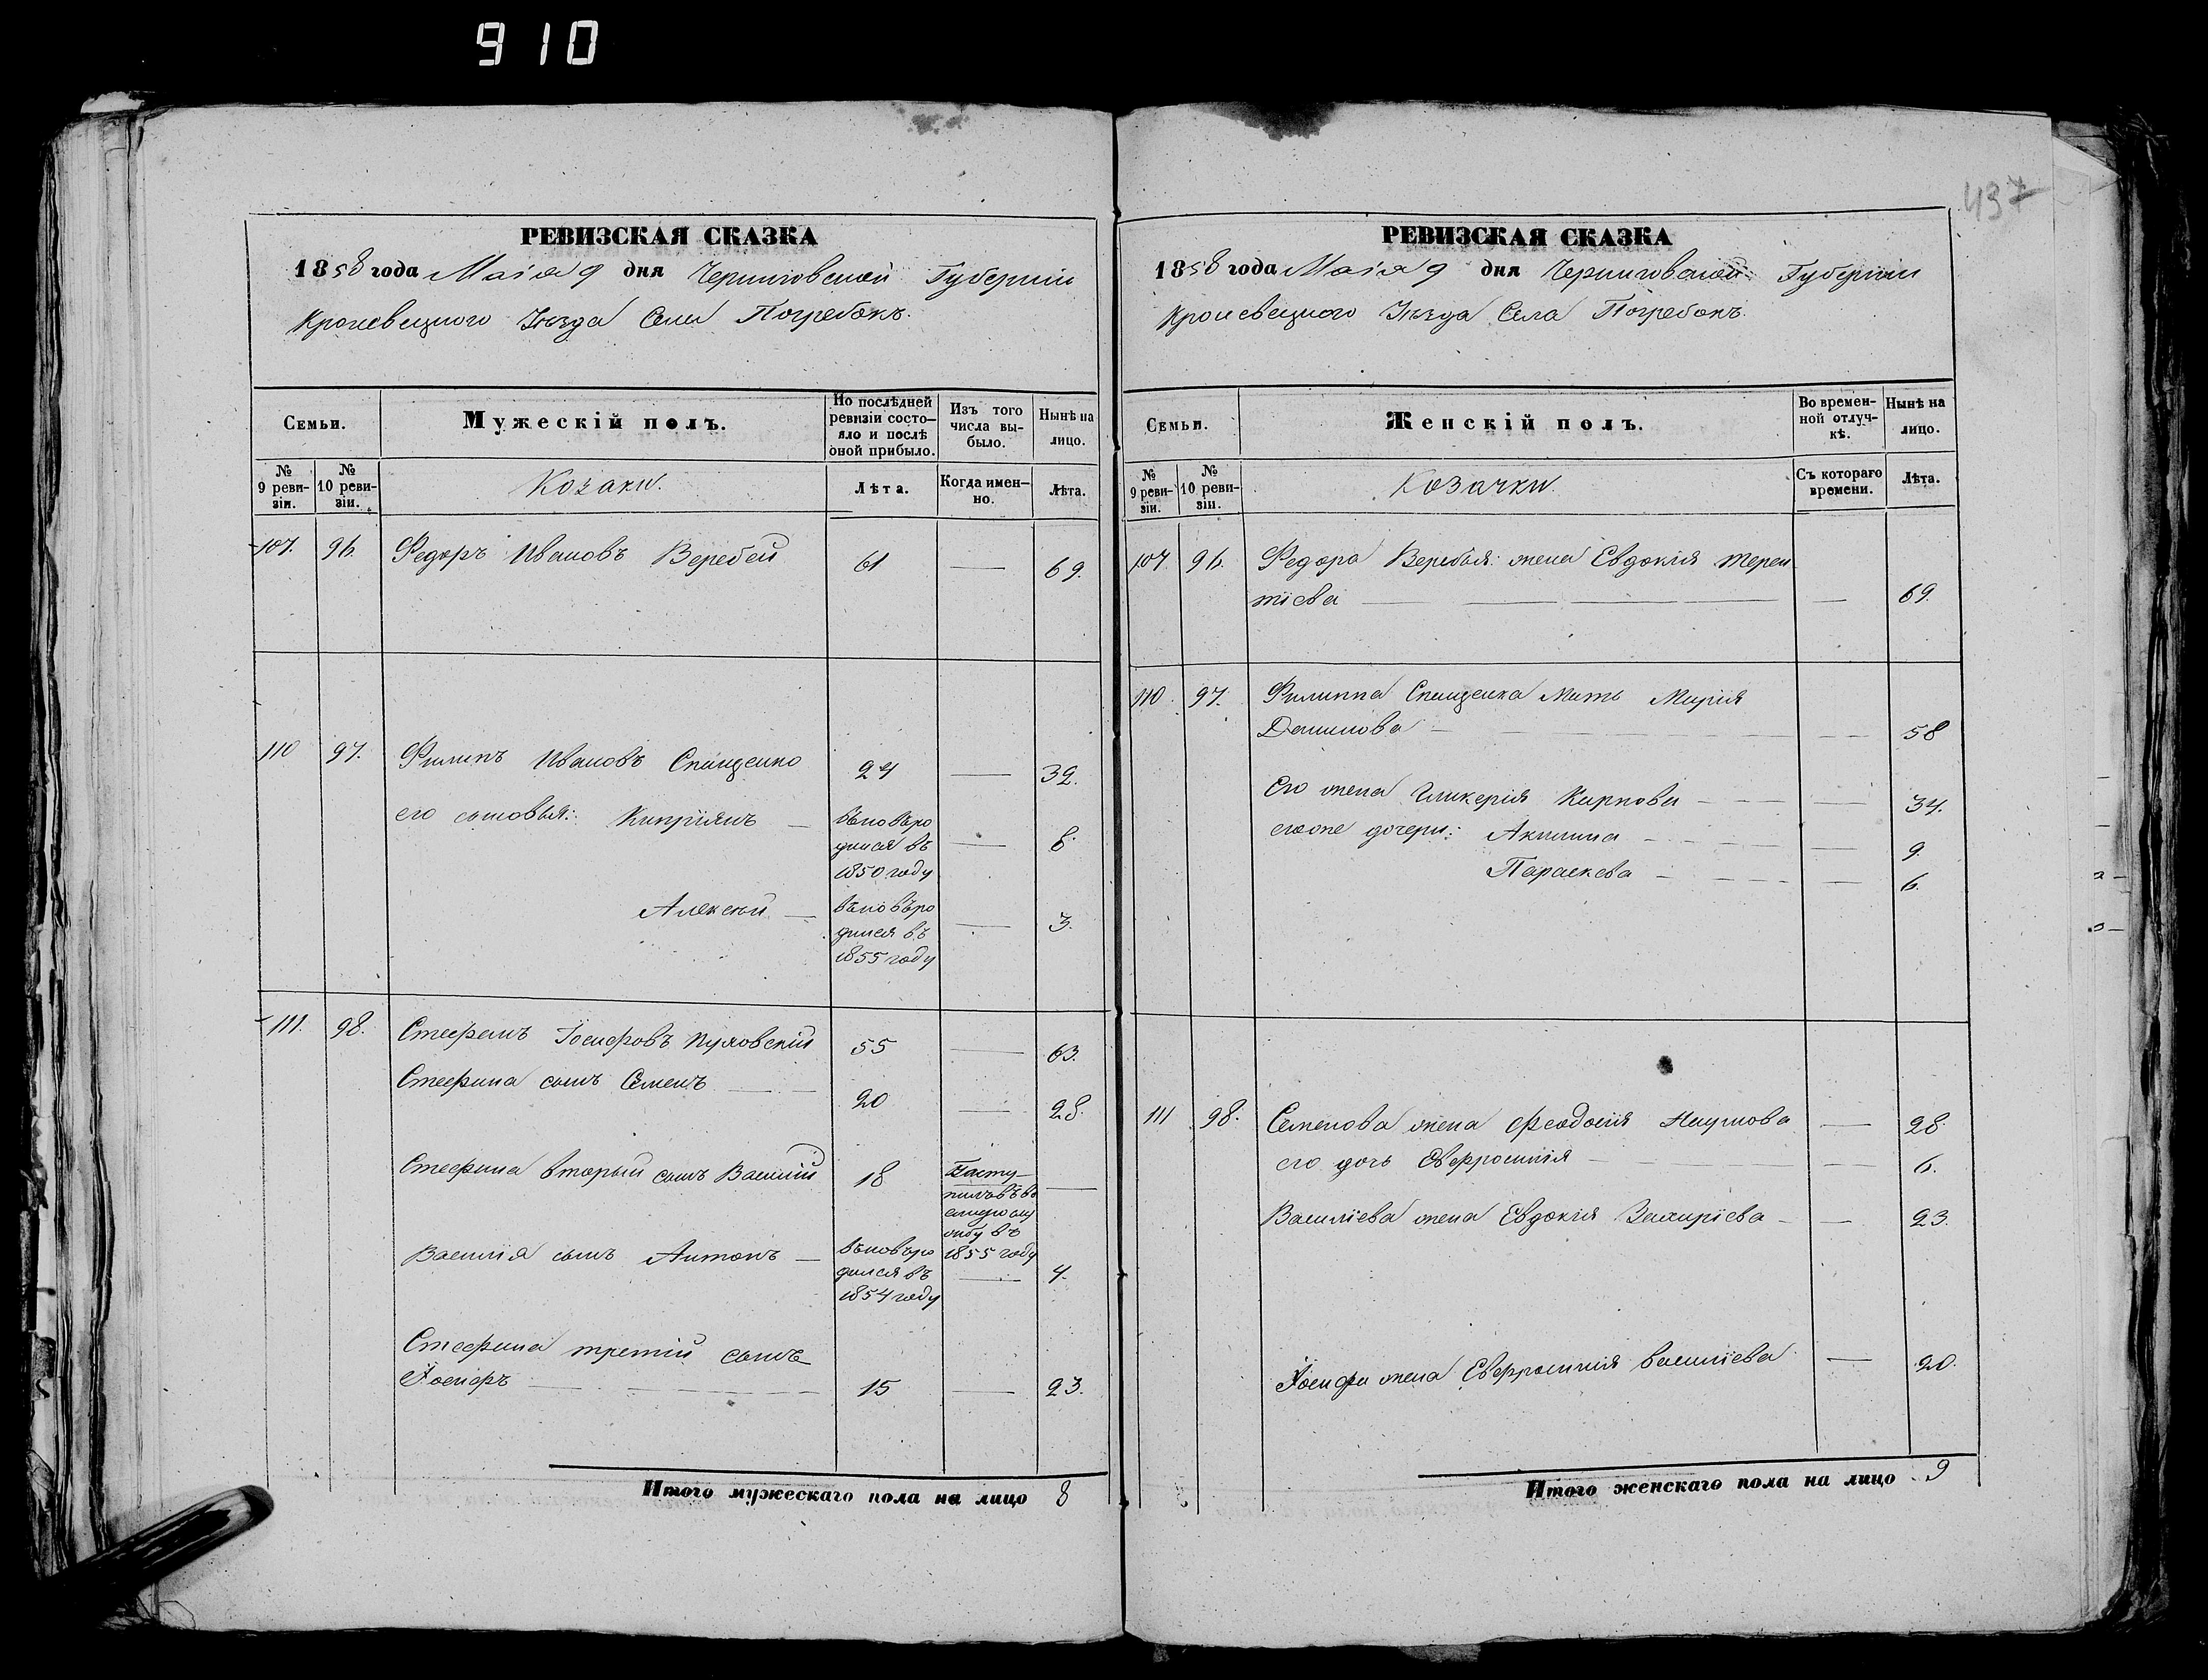 910
437
РЕВИЗСКАЯ СКАЗКА
1858 года Маія 9 дня Черниговской Губерніи
Кролевецкого Уѣзда Села Погребокъ.
Семьи.
Мужескій полъ.
По послѣдней ревизіи состояло и послѣ оной прибыло.
Изъ того числа выбыло.
Нынѣ на лицо.
№ 9 ревизіи.
№ 10 ревизіи.
Козаки.
Лѣта.
Когда именно.
Лѣта.
107. 96. Федоръ Ивановъ Веребей 61 — 69.
110 97. Филипъ Ивановъ Спищенко 24 — 32.
его сыновья: Кипріянъ — вѣновьро
дился въ — 8.
1850 году
Алексѣй — вѣновьро
дился въ — 3.
1855 году
111. 98. Стефанъ Іосифовъ 55 — 63.
Стефана сынъ Семенъ — 20 — 28.
Стефана вторый сынъ Василій 18 —
1855 году
Василія сынъ Антонъ — вѣновьро
дился въ — 4.
1854 году
Стефана третій сынъ
Іосифъ — 15 — 23.
Итого мужескаго пола на лицо 8
РЕВИЗСКАЯ СКАЗКА
1858 года Маія 9 дня Черниговской Губерніи
Кролевецкого Уѣзда Села Погребокъ.
Семьи.
Женскій полъ.
Во временной отлучкѣ.
Нынѣ на лицо.
№ 9 ревизіи.
№ 10 ревизіи.
Козачки.
Съ котораго времени.
Лѣта.
107. 96. Федора Веребья: жена Евдокія Терен
тіева — — 69.
110. 97. Филиппа Спищенка Мать Марія
Данилова — — 58
Его жена Гликерія Карпова — — 34.
егоже дочери: Акилина — — 9.
Параскева — — 6.
111 98. Семенова жена Феодосія Наумова — 28.
его дочь Евфросинія — — 6.
Василіева жена Евдокія Захаріева — — 23.
Іосифа жена Евфросинія Василіева — 20.
Итого женскаго пола на лицо 9